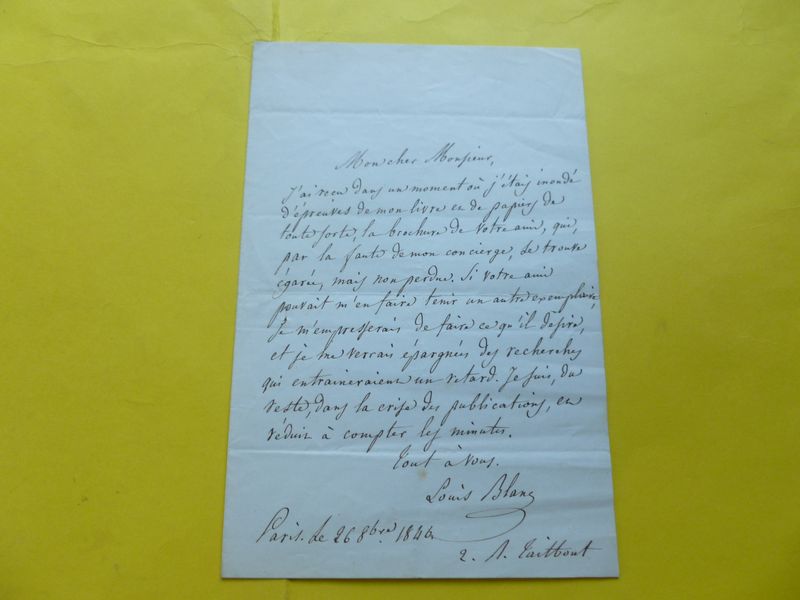 Mon cher Monsieur,
J'ai reçu dans un moment où j'étais inondé
d'épreuves de mon livre et de papiers de
toute sorte, la brochure de votre ami, qui,
par la faute de mon concierge, se trouve
égarée, mais non perdue. Si votre ami
pouvait m'en faire tenir un autre exemplaire,
je m'empresserais de faire ce qu'il désire,
et je me verrais épargnées des recherches
qui entraineraient un retard. Je suis, du
reste, dans la crise des publications, et
réduit à compter les minutes.
Tout à vous.
Louis Blanc
Paris. le 26 8bre 1846
2. r. Taitbout